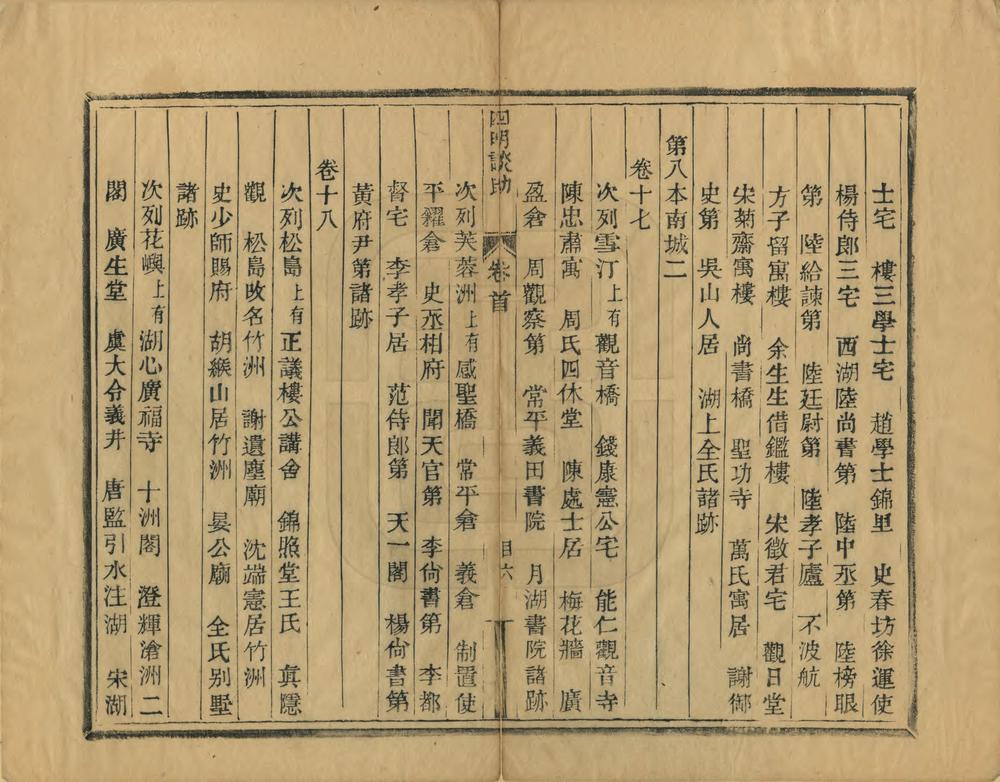 士宅　樓三學士宅　趙學士錦里　史春坊徐運使
楊侍郎三宅　西湖陸尚書第　陸中丞第　陸榜眼
第　陸給諫第　陸廷尉第　陸孝子廬　不波航
方子留寓樓　余生生借鑑樓　宋徵君宅　觀日堂
宋菊齋寓樓　尚書橋　聖功寺　萬氏寓居　謝御
史第　吳山人居　湖上全氏諸跡
第八本南城二
卷十七
次列雪汀上有觀音橋　錢康憲公宅　能仁觀音寺
陳忠肅寓　周氏四休堂　陳處士居　梅花牆　廣
盈倉　周觀察第　常平義田書院　月湖書院諸跡
四明談助　卷首　目六
次列芙蓉洲上有感聖橋　常平倉　義倉　制置使
平糴倉　史丞相府　聞天官第　李尙書第　李都
督宅　李孝子居　范侍郎第　天一閣　楊尙書第
黃府尹第諸跡
卷十八
次列松島上有正議樓公講舍　錦照堂王氏　真隱
觀　松島改名竹洲　謝遺塵廟　沈端憲居竹洲
史少師賜府　胡緱山居竹洲　晏公廟　全氏别墅
諸跡
次列花嶼上有湖心廣福寺　十洲閣　澄輝滄洲二
閣　廣生堂　虞大令義井　唐監引水注湖　宋湖